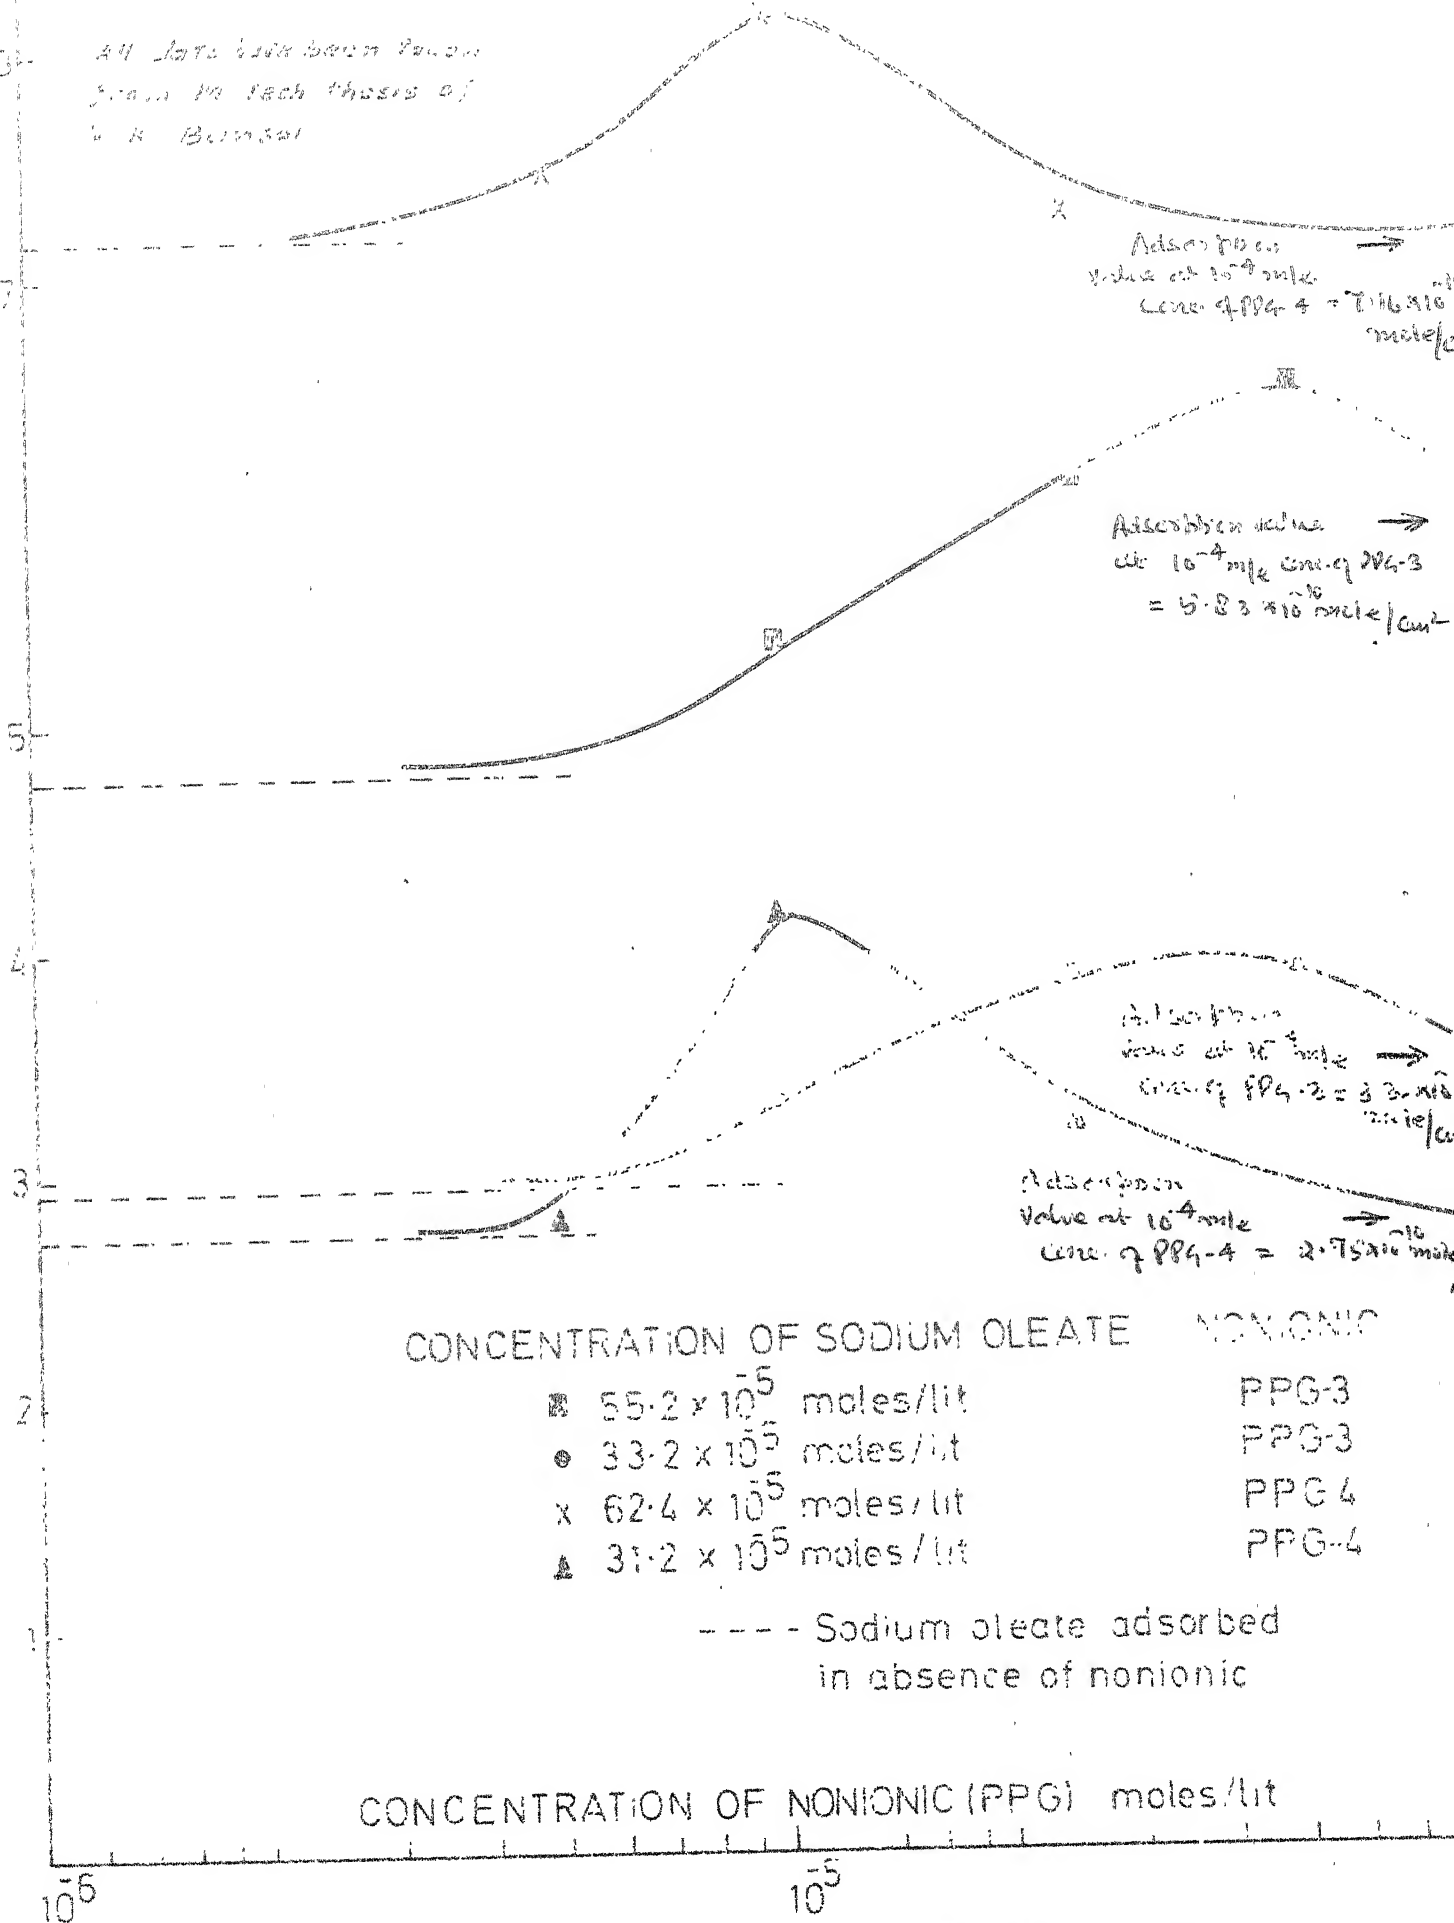 All data have been taken
from M Tech thesis of
K Bansal
7
Adsorption →
value at 10⁻⁴ m/l
conc. of PPG-4 = 7.16 x10
mole/c
Adsorption value →
at 10⁻⁴ m/l conc. of PPG-3
= 5.83 x10⁻¹⁰ mole/cm²
5
4
Adsorption
value at 10⁻⁴ m/l →
conc. of PPG-3 =
mole/
3
Adsorption
value at 10⁻⁴ m/l →
conc. of PPG-4 = 2.75x10⁻¹⁰ mole
CONCENTRATION OF SODIUM OLEATE NONIONIC
55.2 x 10⁻⁵ moles/lit PPG-3
33.2 x 10⁻⁵ moles/lit PPG-3
x 62.4 x 10⁻⁵ moles/lit PPG 4
31.2 x 10⁻⁵ moles/lit PPG-4
2
---- Sodium oleate adsorbed
in absence of nonionic
1
CONCENTRATION OF NONIONIC (PPG) moles/lit
10⁻⁶ 10⁻⁵